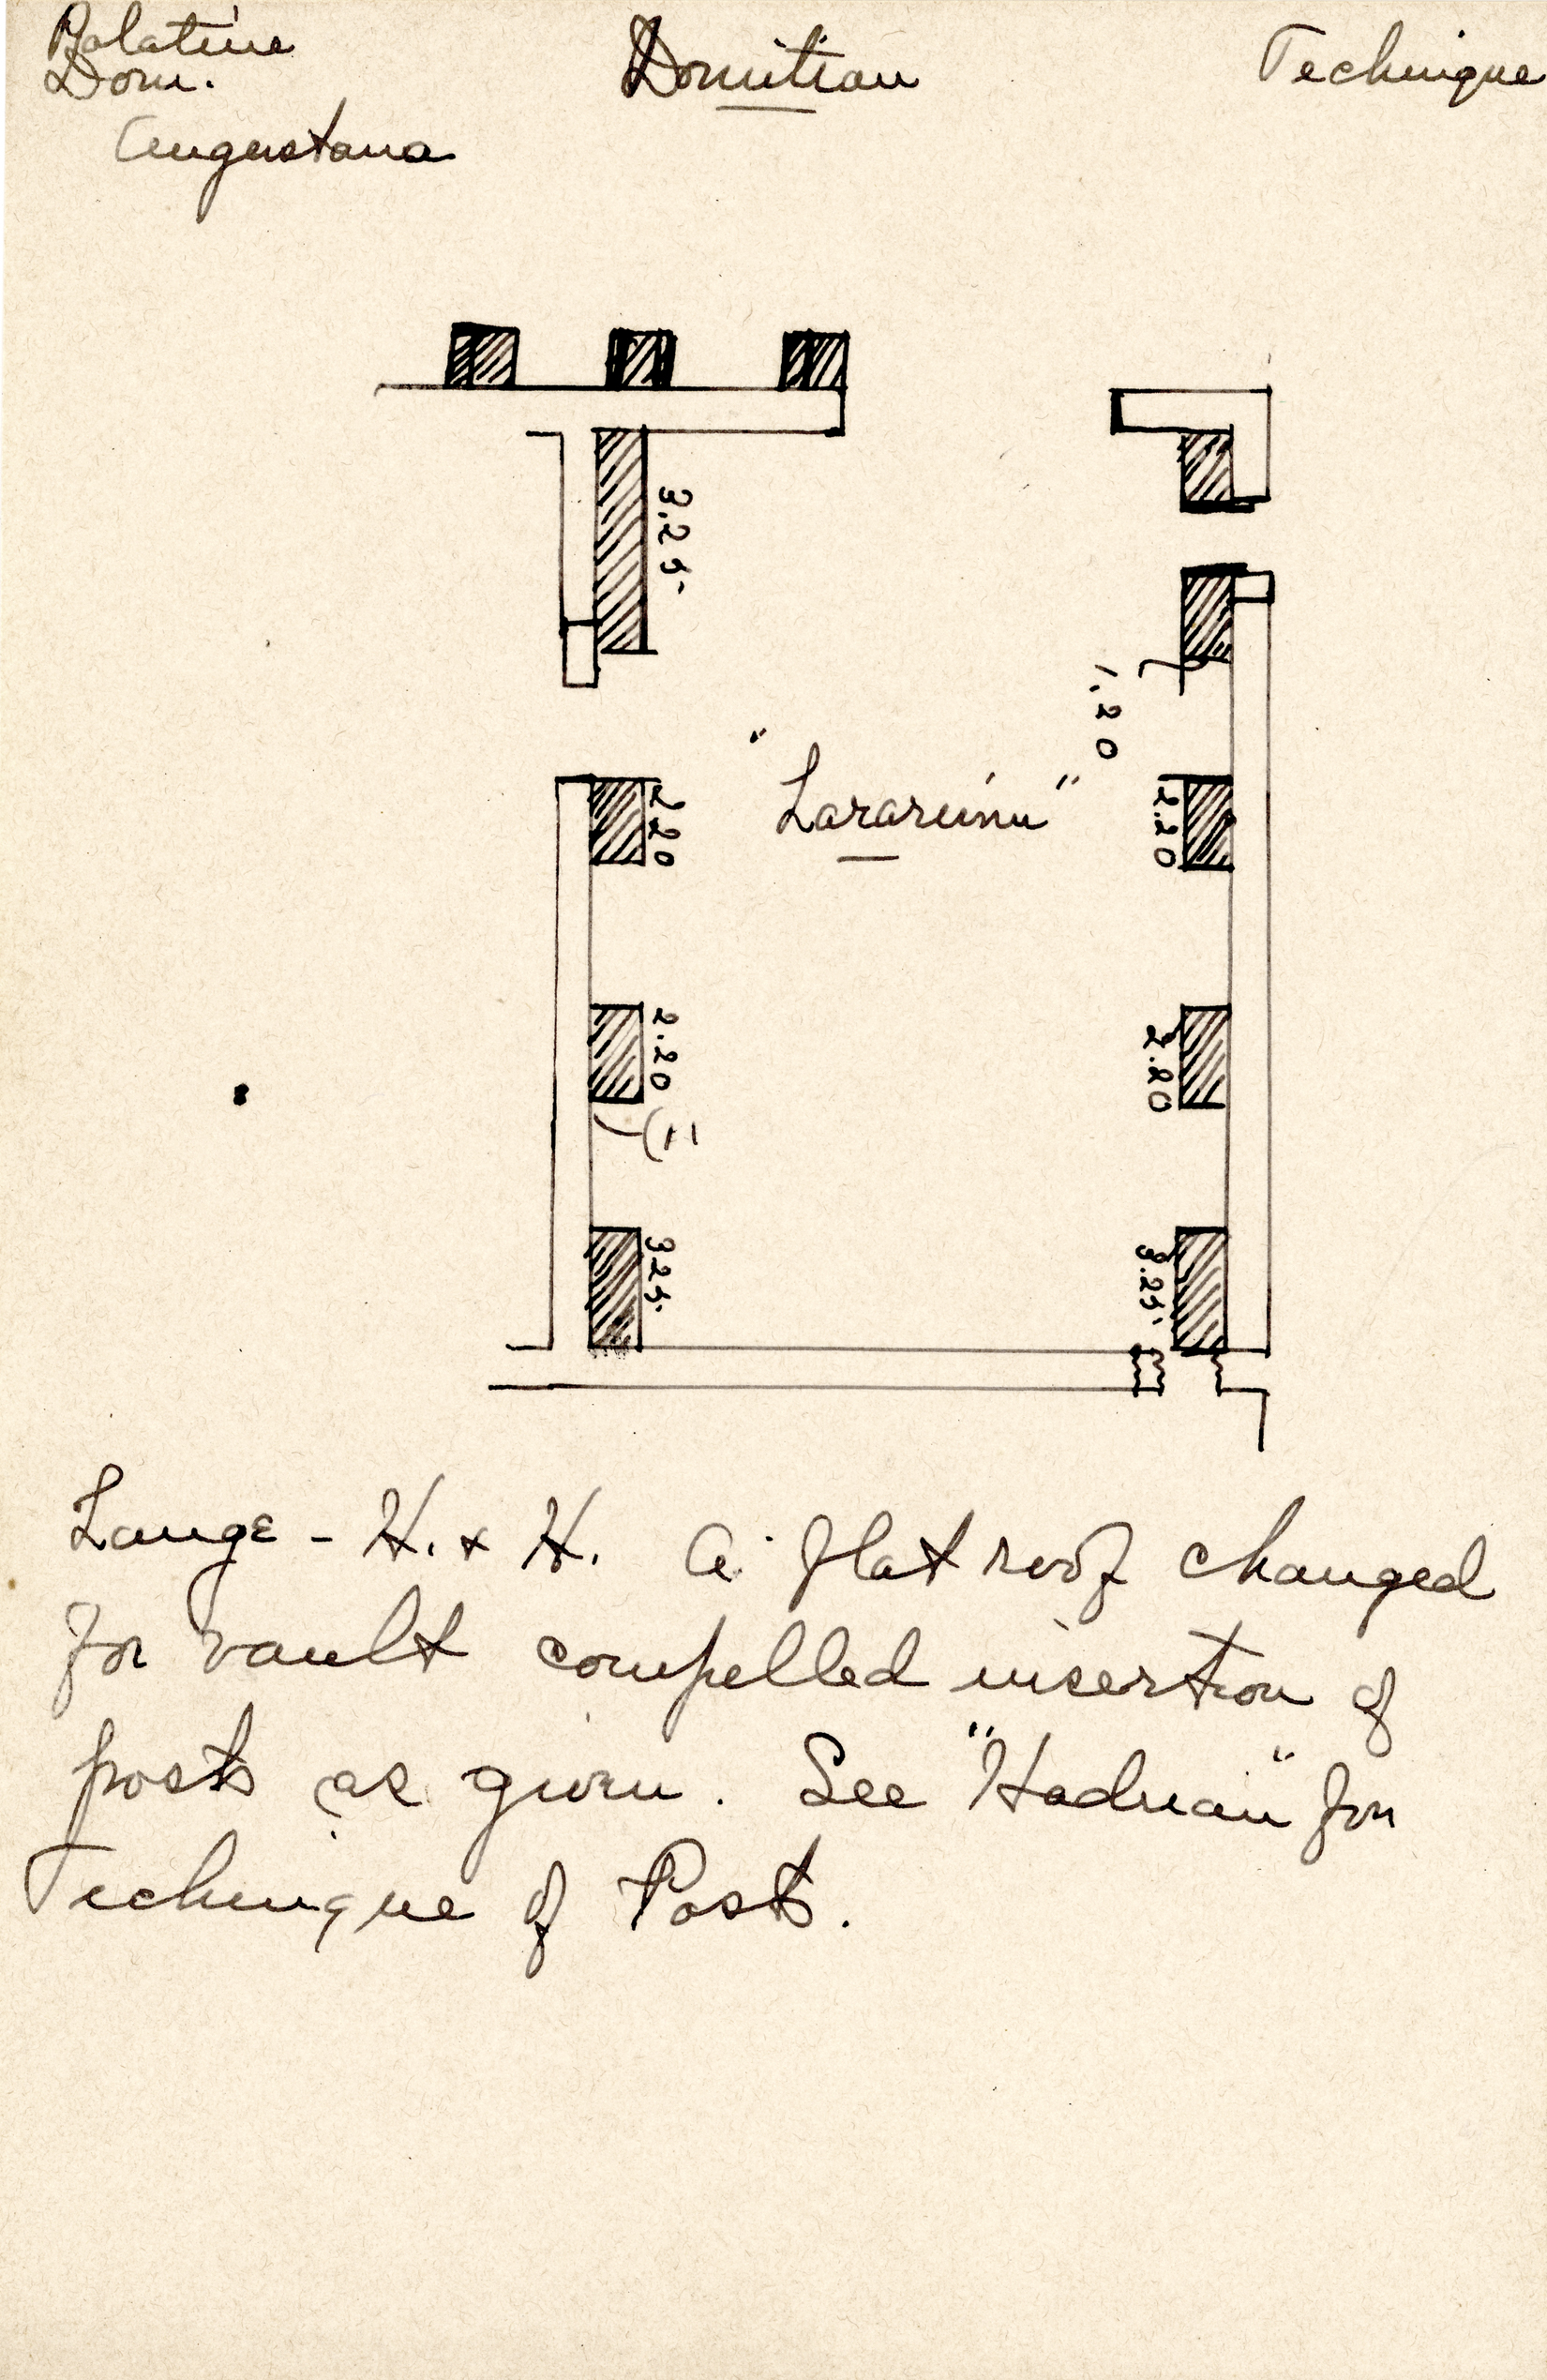 Palatine Domitian Technique
Dom.
Augustana
3.25
1.20
"Lararium"
2.20
2.20
2.20
2.20
3.25
3.25
Lange - H. & H. A flat roof changed
for vault compelled insertion of
posts as given. See "Hadrian" for
Technique of Posts.